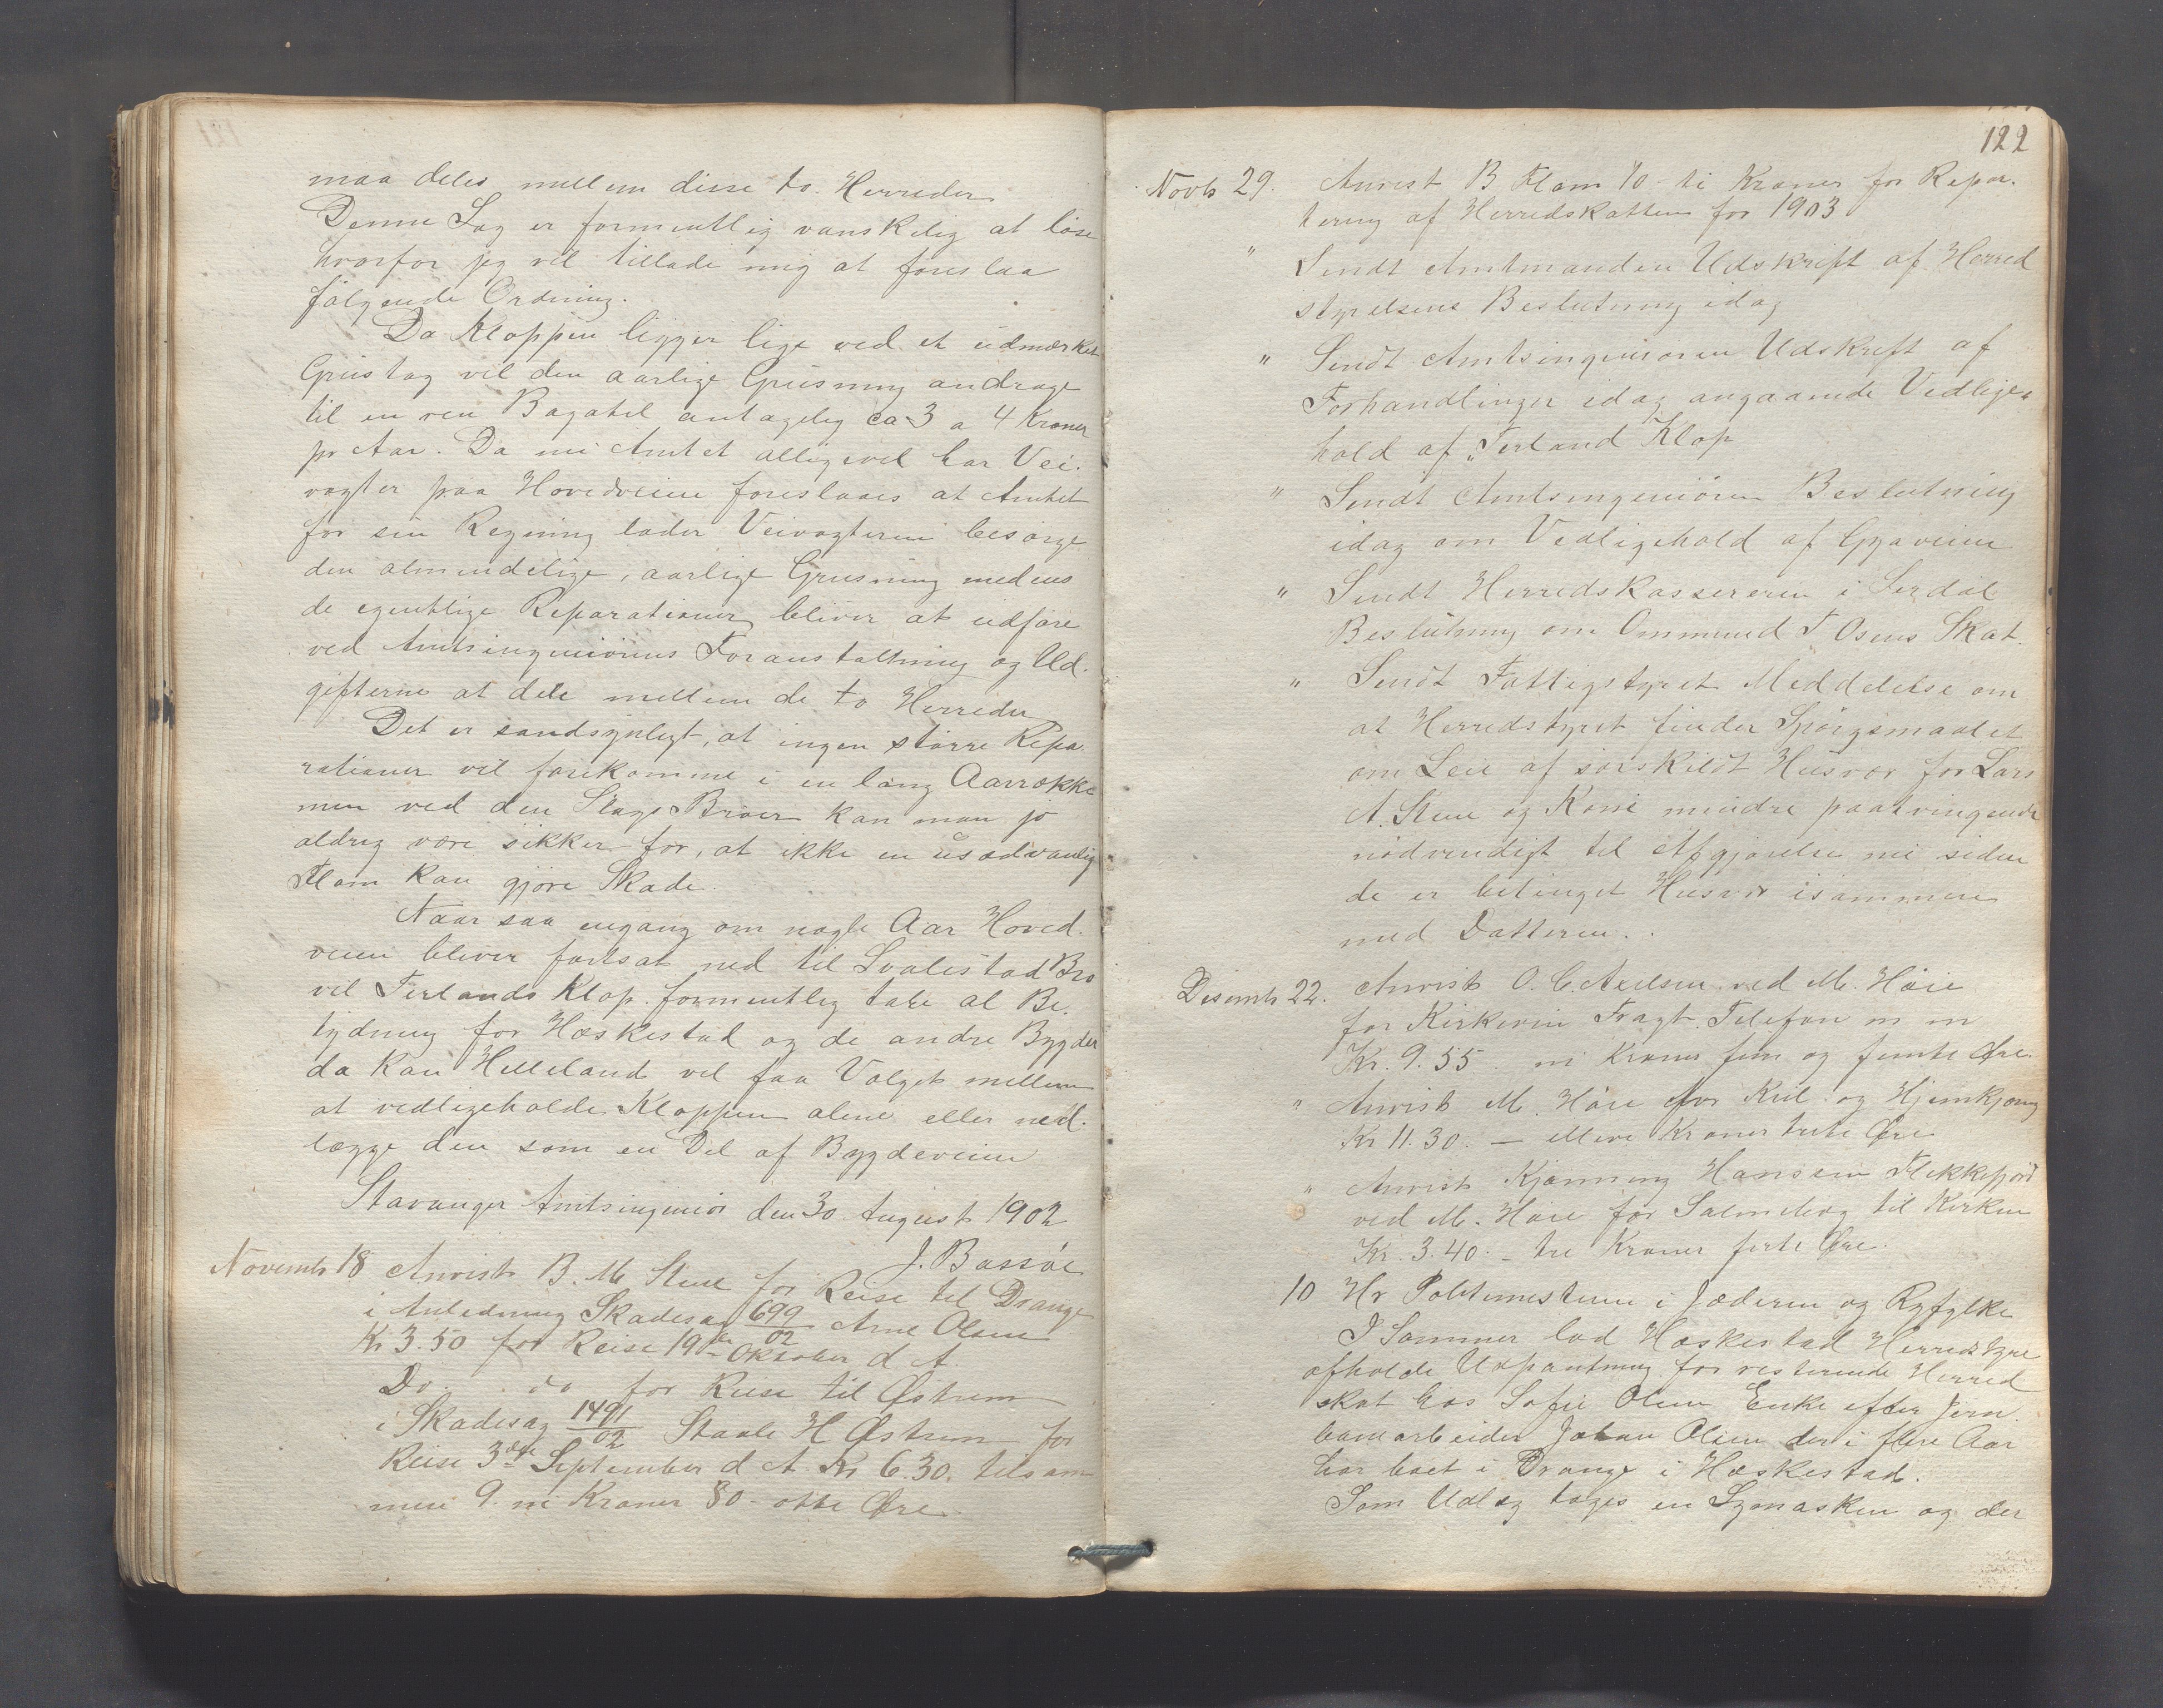 maa deles mellem disse to Herreder
Denne Sag er formentlig vanskelig at löse
hvorfor jeg vil tillade mig at foreslaa
følgende Ordning.
Da Kloppen ligger lige ved et udmærket
Grustag vil den aarlige Grusning andrage
til en ren Bagatel antagelig ca 3 a 4 Kroner
pr Aar. Da nu Amtet alligevel har Vei-
vogter paa Hovedveien foreslaaes at Amtet
for sin Regning lader Veivogteren besörge
den almindelige, aarlige Grusning medens
de egentlige Reparationer bliver at udföre
ved Amtsingeniörens Foranstaltning og Ud-
gifterne at dele mellem de to Herreder
Det er sandsynligt, at ingen större Repa
rationer vil forekomme i en lang Aarrække
men ved den Slags Broer kan man jo
aldrig være sikker for, at ikke en usædvanlig
Flom kan gjöre Skade.
Naar saa engang om nogle Aar Hoved-
veien bliver fortsat ned til Svalestad Bro
vil Terlands Klop formentlig tabe al Be-
tydning for Hæskestad og de andre Bygder
da kan Helleland vel faa Valget mellem
at vedligeholde Kloppen alene eller ned-
lægge den som en Del af Bygdeveien
Stavanger Amtsingeniör den 30 August 1902
J. Bassöe
Novembr 18 Anvist B. M. Stene for Reise til Drange
i Anledning Skadesag 699/02 Arne Olsen
Kr 3.50 for Reise 19de Oktober d A.
Do. do for Reise til Østrem
i Skadesag 1491/02 Staale H Østrem for
Reise 3die September d A. Kr 6.30. tilsam
men 9. ni Kroner 80 - otte Øre
122
Novbr 29. Anvist B Flam 10 - ti Kroner for Repar-
tering af Herredskatten for 1903
" Sendt Amtmanden Udskrift af Herred
styrelsens Beslutning idag
" Sendt Amtsingeniören Udskrift af
Forhandlinger idag angaaende Vedlige-
hold af Terland Klop
" Sendt Amtsingeniören Beslutning
idag om Vedligehold af Gyaveien
" Sendt Herredskassereren i Serdal
Beslutning om Ommund T Osens Skat.
" Sendt Fattigstyret Meddelelse om
at Herredstyret finder Spörgsmaalet
om Leie af særskildt Husvær for Lars
A. Stene og Kone mindre paatvingende
nödvendigt til Afgjörelse nu siden
de er betinget Husvær isammen
med Datteren.
Desembr 22. Anvist O. C. Axelsen ved M. Höie
for Kirkevin Fragt. Telefon m m
Kr. 9.55. ni Kroner fem og femti Øre.
" Anvist M. Höie for Kul og Hjemkjöring
Kr 11.30. – elleve Kroner treti Øre
" Anvist Kjönning Hansen Flekkefjord
ved M. Höie for Salmebog til Kirken
Kr. 3.40. – tre Kroner förti Öre.
10 Hr Politimesteren i Jæderen og Ryfylke
I Sommer lod Hæskestad Herredstyre
afholde Udpantning for resterende Herred
skat hos Sofie Olsen Enke efter Jern-
banearbeider Johan Olsen der i flere Aar
har boet i Drange i Hæskestad.
Som Udlæg toges en Symaskin og der